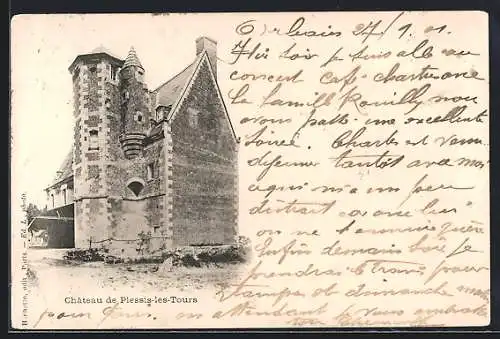 Orléans 24/1 01
Hier soir je suis allé au
concert café chartreuse
la famille Pouilly nous
avons passé une excellente
soirée. Charles est venu
déjeuner tantôt avec moi
ce qui m'a un peu
distrait car one
on ne s'amuse guère
Enfin demain soir je
prendrai le train pour
Étampes où dimanche
pour Paris. En attendant je vous embrasse
Château de Plessis-les-Tours
édit. Paris. — Ed. L. phot.